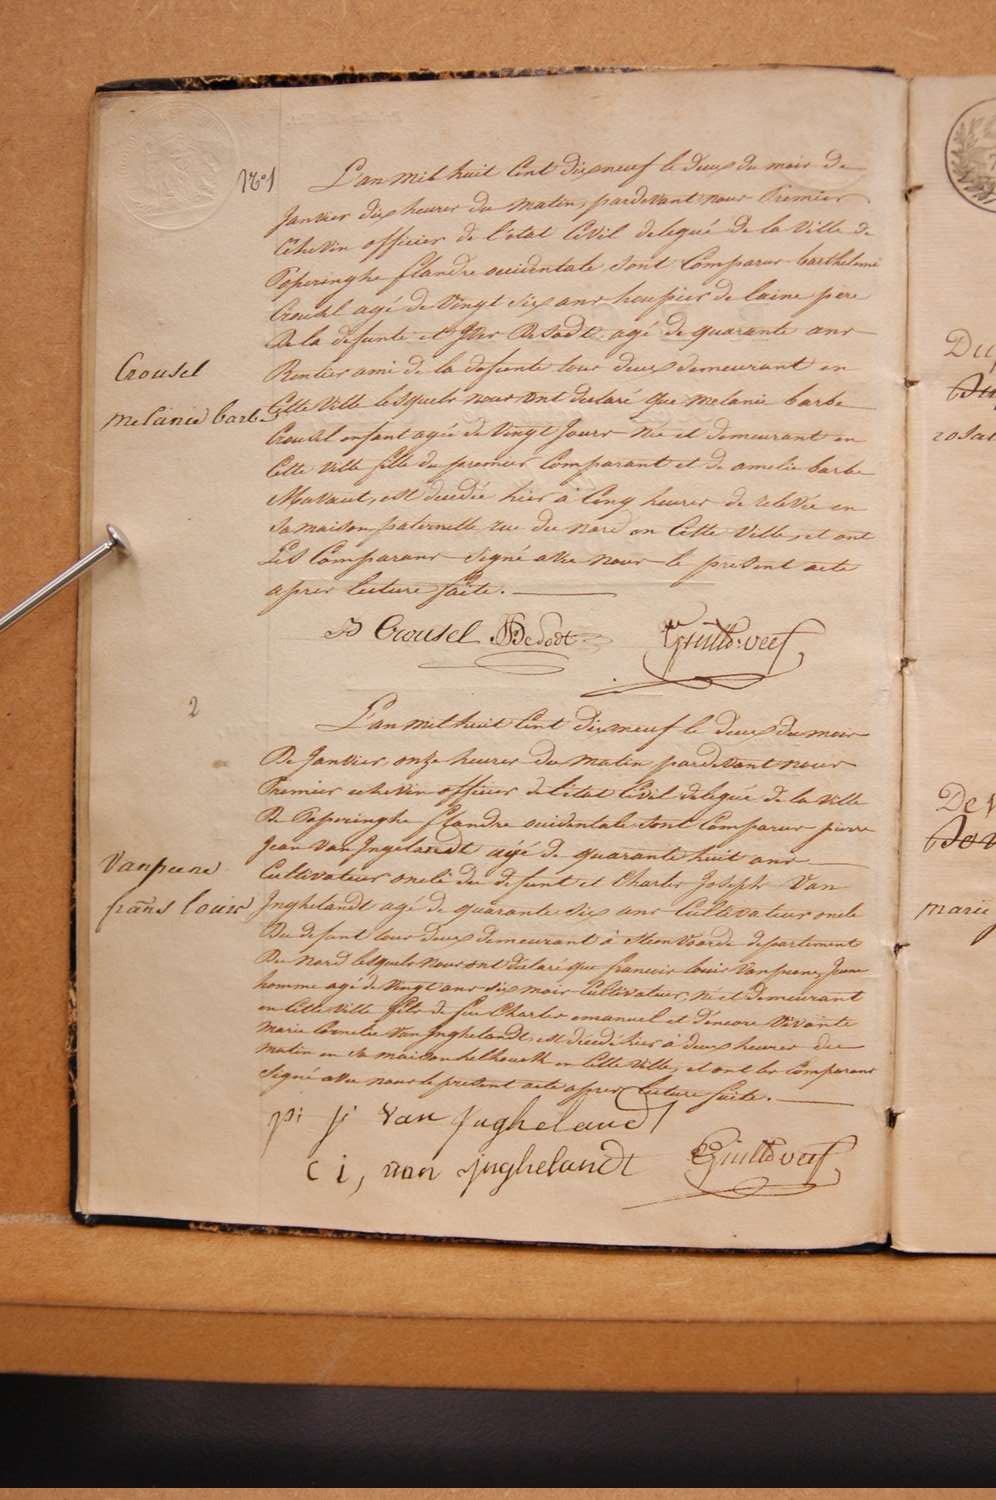 N°1
L'an mil huit Cent dix neuf le deux du mois de
Janvier dix heures du matin, pardevant nous Premier
Echevin officier de l'état Civil delegué de la Ville de
Poperinghe flandre occidentale sont Comparus barthelemi
Crousel agé de Vingt six ans houpier de laine pere
De la defunte et Yves Desodt agé de quarante ans
Rentier ami de la defunte tous deux demeurant en
Cette Ville lesquels nous ont declaré que melanie barbe
Crousel enfant agée de Vingt Jours née et demeurant en
Cette Ville fille du premier Comparant et de amelie barbe
est decedée hier à Cinq heures de relevée en
sa maison paternelle rue du nord en Cette Ville, et ont
Les Comparans signé avec nous le present acte
apres lecture faite.
Crousel
melanie barbe
B Crousel Desodt
2
L'an mil huit Cent dix neuf le deux du mois
De Janvier onze heures du matin pardevant nous
Premier echevin officier de l'état Civil delegué de la Ville
De Poperinghe flandre occidentale sont Comparus pierre
Jean Van Ingelandt agé de quarante huit ans
Cultivateur oncle du defunt et Charles Joseph Van
Inghelandt agé de quarante six ans Cultivateur oncle
Du defunt tous deux demeurant à Steenvoorde departement
Du nord lesquels nous ont declaré que francois louis Vanpeene, Jeune
homme agé de Vingt ans six mois Cultivateur, né et demeurant
en Cette Ville fils de feu Charles emanuel et d'encore Vivante
Marie Cornelie Van Inghelandt, est decedé hier à deux heures du
matin en sa maison en Cette Ville, et ont les Comparans
signé avec nous le present acte apres lecture faite.
Vanpeene
frans louis
pi ji van Inghelandt
c i, van inghelandt
marie